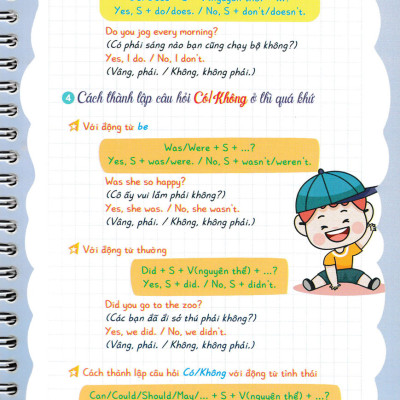 Yes, S + do/does. / No, S + don't/doesn't.
Do you jog every morning?
(Có phải sáng nào bạn cũng chạy bộ không?)
Yes, I do. / No, I don't.
(Vâng, phải. / Không, không phải.)
4 Cách thành lập câu hỏi Có/Không ở thì quá khứ
Với động từ be
Was/Were + S + ...?
Yes, S + was/were. / No, S + wasn't/weren't.
Was she so happy?
(Cô ấy vui lắm phải không?)
Yes, she was. / No, she wasn't.
(Vâng, phải. / Không, không phải.)
Với động từ thường
Did + S + V(nguyên thể) + ...?
Yes, S + did. / No, S + didn't.
Did you go to the zoo?
(Các bạn đã đi sở thú phải không?)
Yes, we did. / No, we didn't.
(Vâng, phải. / Không, không phải.)
Cách thành lập câu hỏi Có/Không với động từ tình thái
Can/Could/Should/May/... + S + V(nguyên thể) + ...?